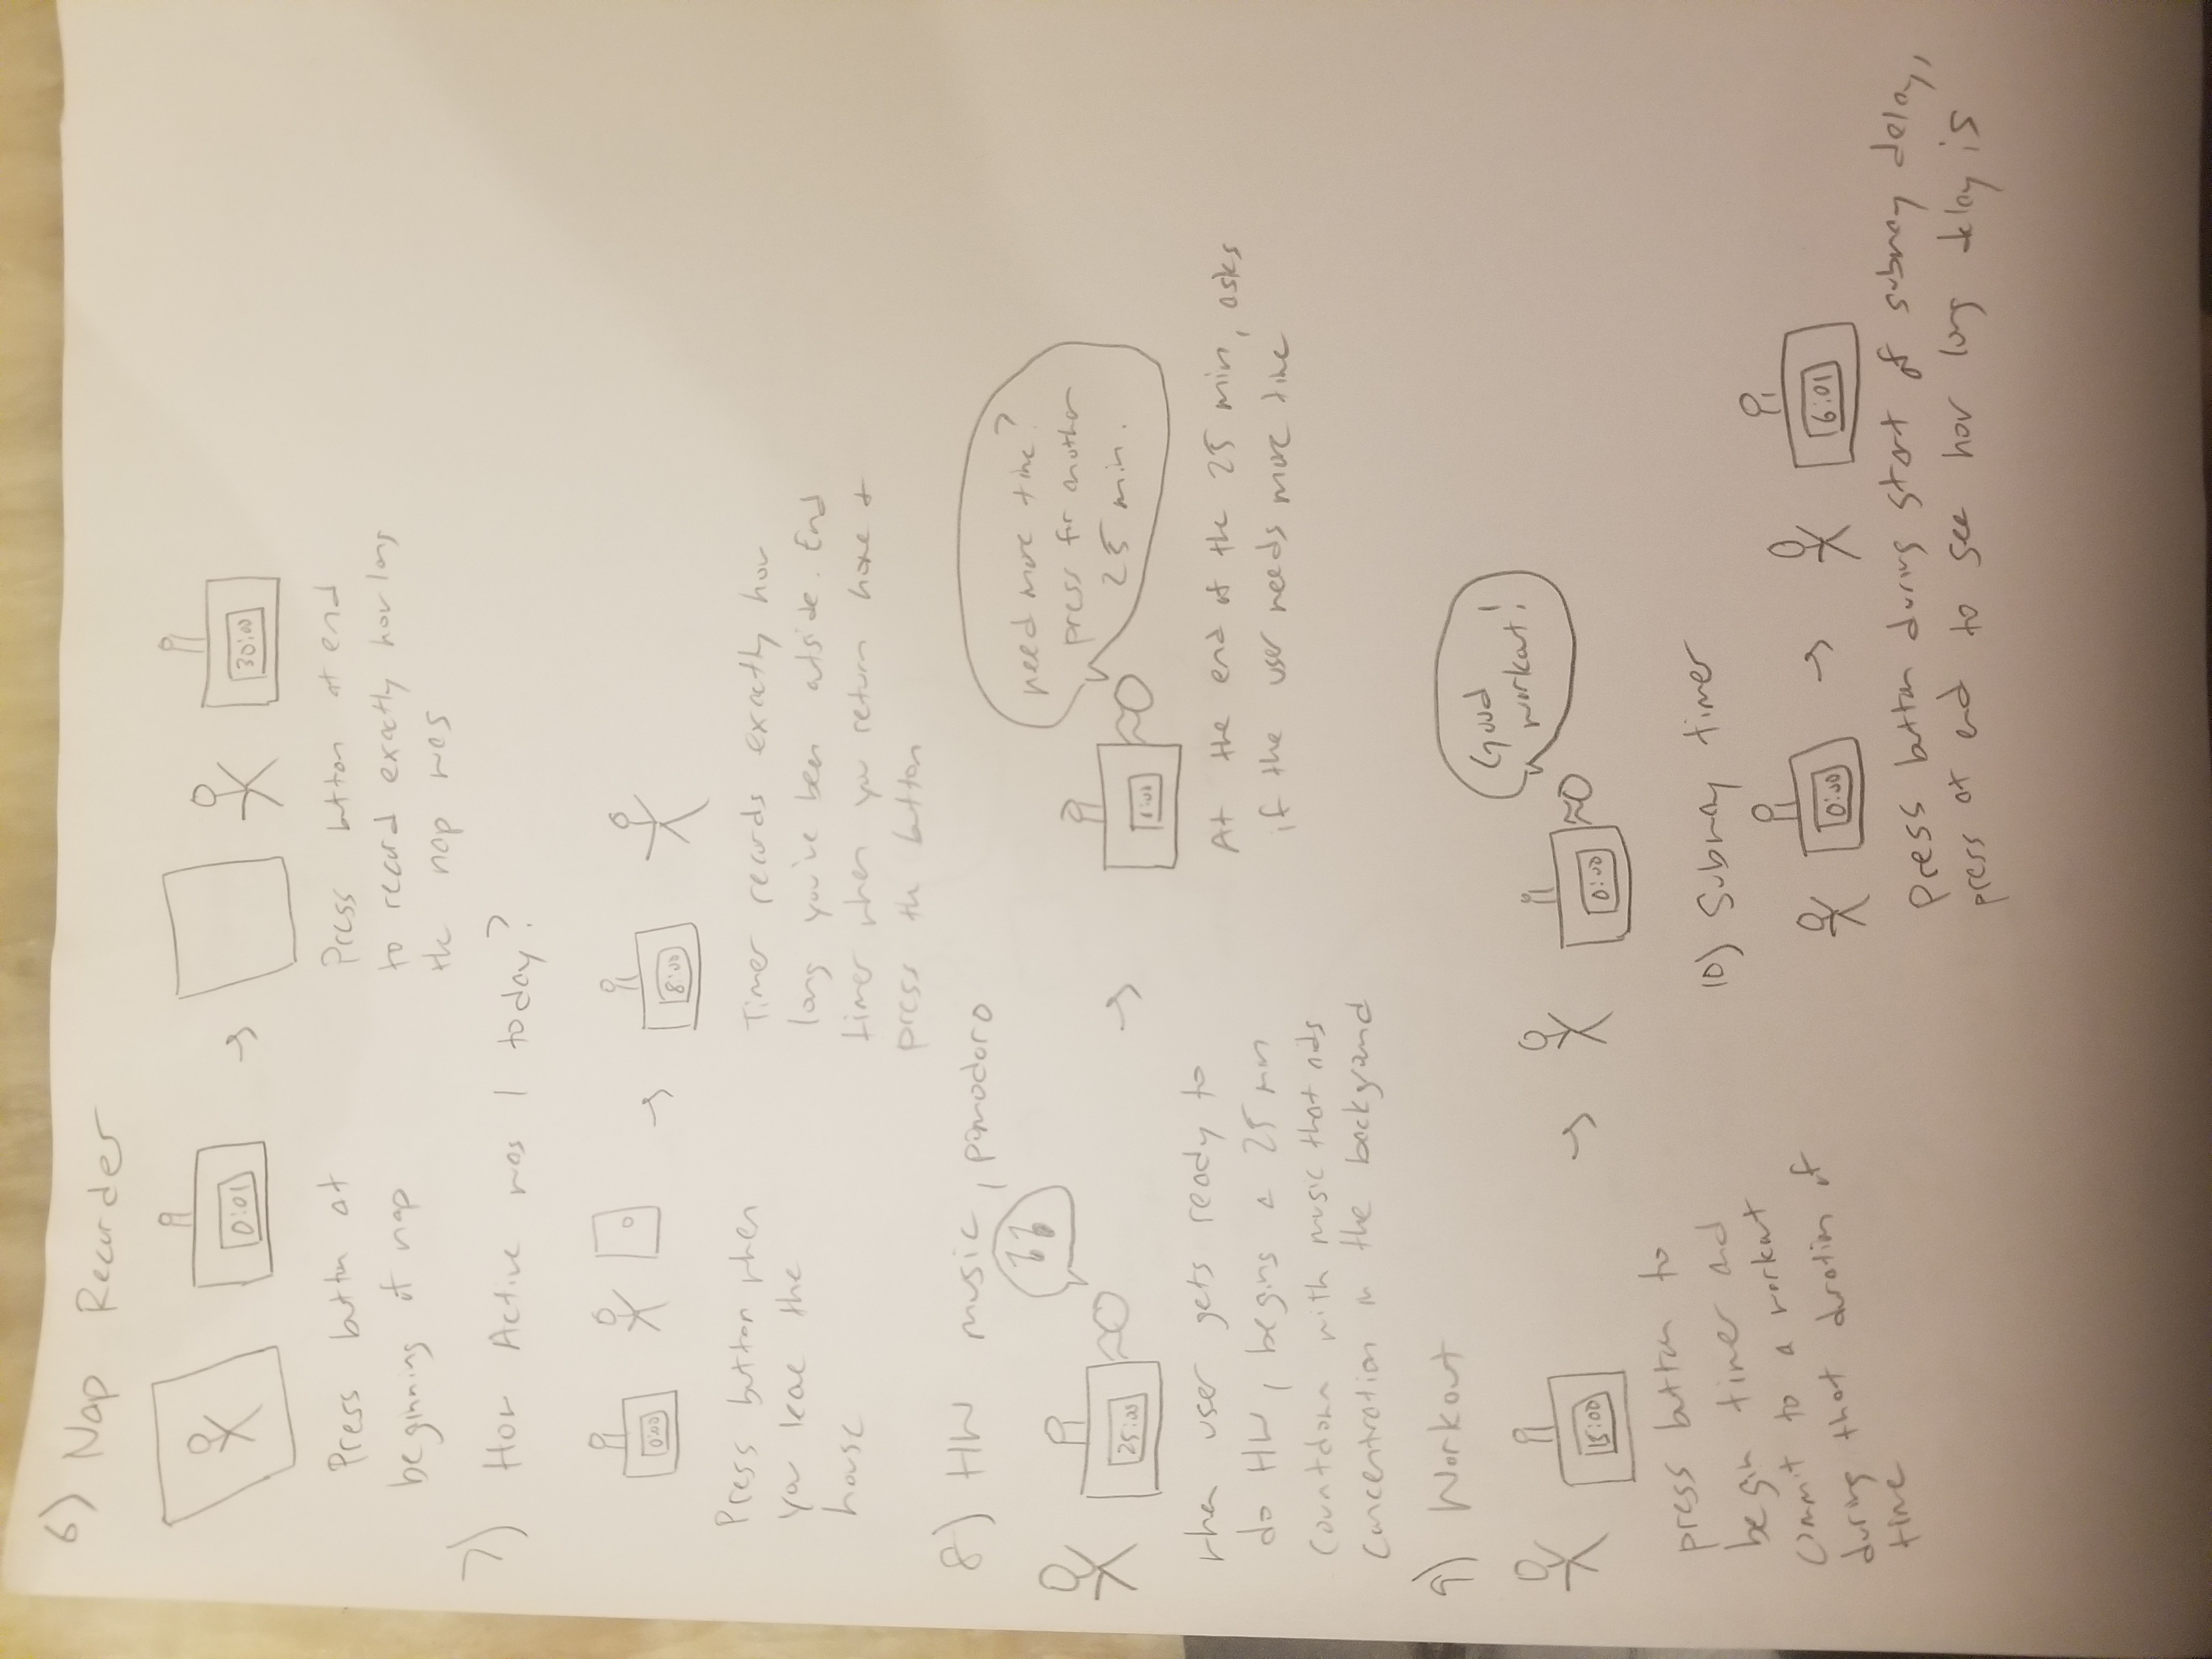 6) Nap Recorder
0:01
30:00
Press button at
beginning of nap
Press button at end
to record exactly how long
the nap was
7) How Active was I today?
0:00
8:00
Press button when
you leave the
house
Timer records exactly how
long you've been outside. End
timer when you return home +
press the button
8) HW music, pomodoro
25:00
need more time?
press for another
25 min.
when user gets ready to
do HW, begins a 25 min
countdown with music that aids
concentration in the background
At the end of the 25 min, asks
if the user needs more time
9) Workout
15:00
0:00
Good
workout!
press button to
begin timer and
commit to a workout
during that duration of
time
10) Subway timer
0:00
6:01
Press button during start of subway delay,
press at end to see how long delay is